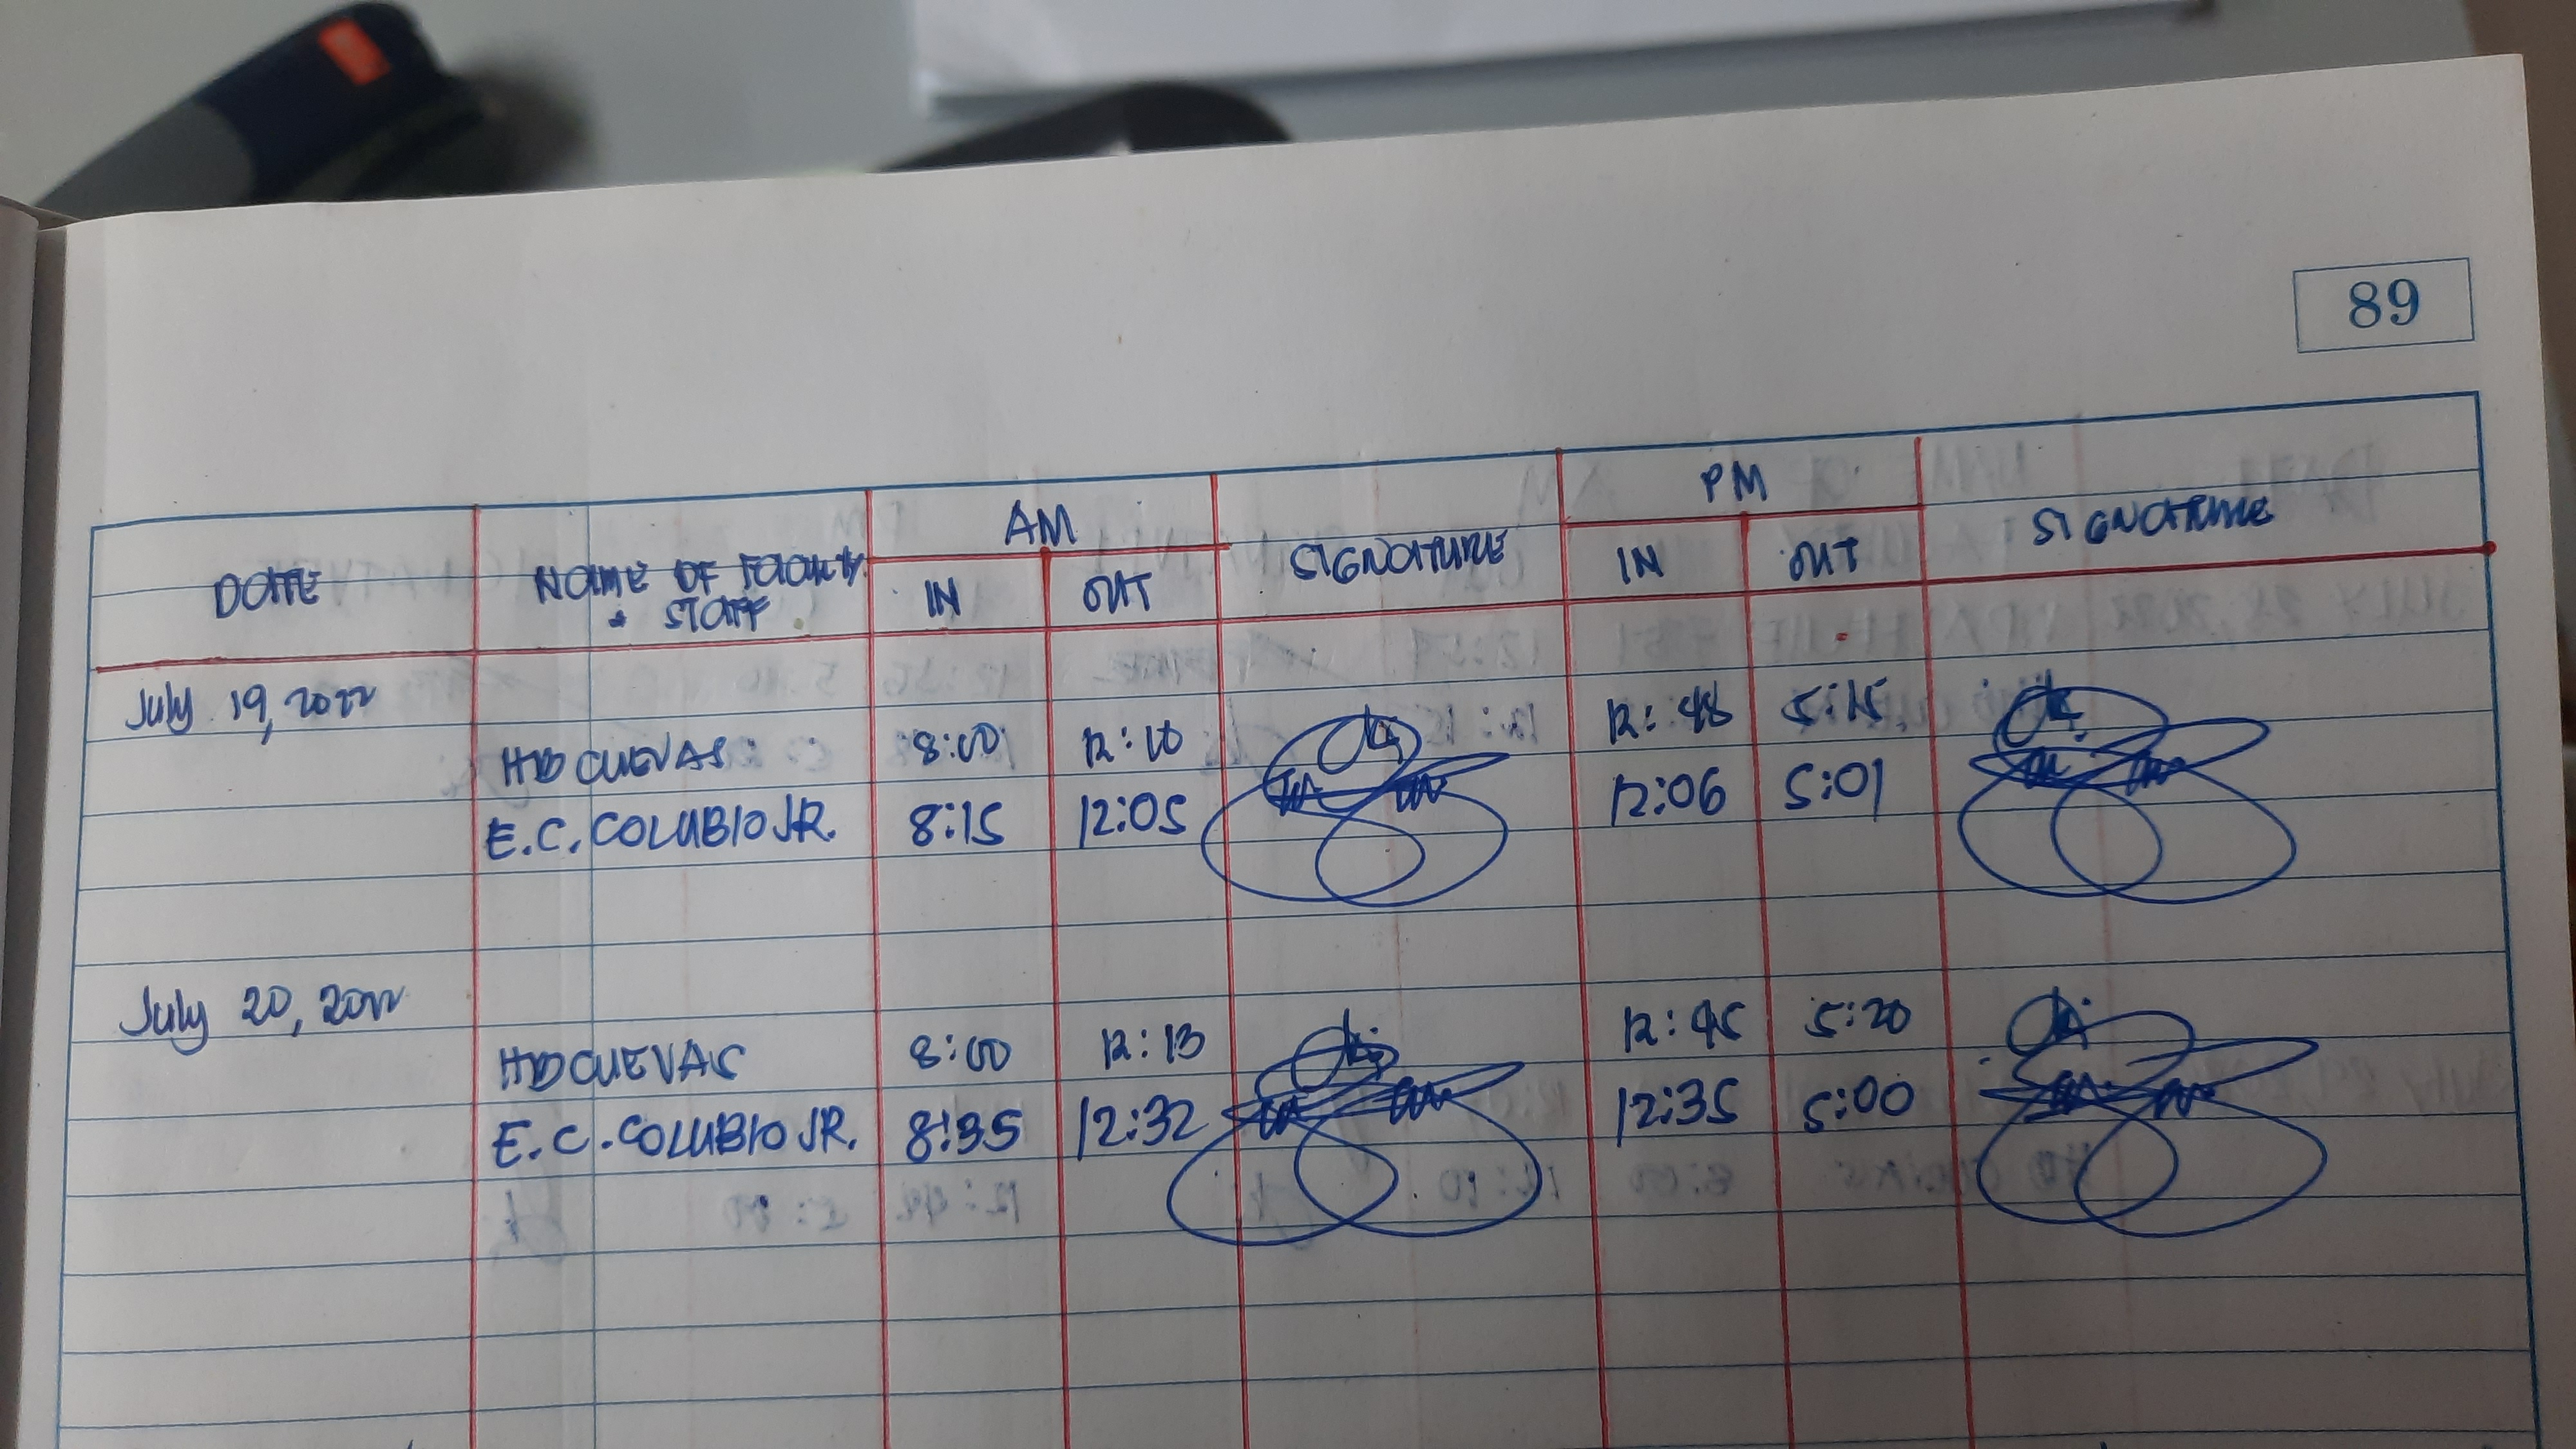 89
AM PM
DATE NAME OF FACULTY SIGNATURE SIGNATURE
& STAFF IN OUT IN OUT
July 19, 2022
HD CUEVAS 8:00 12:10 12:48 5:15
E.C. COLUBIO JR. 8:15 12:05 12:06 5:01
July 20, 2022
HD CUEVAS 8:00 12:13 12:45 5:20
E.C. COLUBIO JR. 8:35 12:32 12:35 5:00